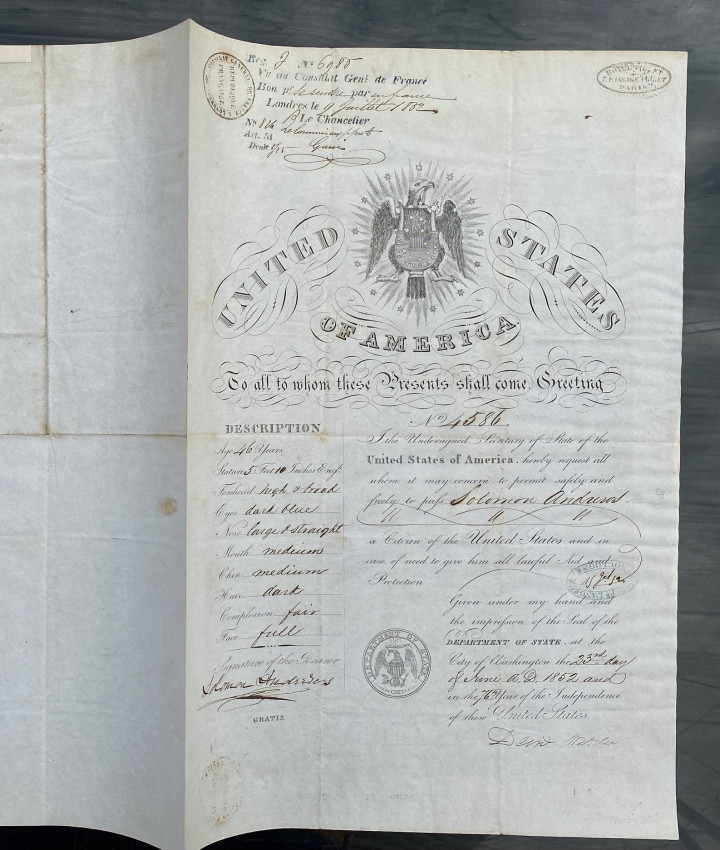 Reg. J Nº 6985
Vu au Consulat Genl. de France
Bon pr. se rendre par en france
Londres le 9 Juillet 1852
Nº 824 Le Chancelier
Art. 51
Droit
UNITED STATES
OF AMERICA
To all to whom these Presents shall come, Greeting
Nº 4586
DESCRIPTION
Age 46 Years
Stature 5 Feet 10 Inches Eng.
Forehead high & broad
Eyes dark blue
Nose large & straight
Mouth medium
Chin medium
Hair dark
Complexion fair
Face full
Signature of the Bearer
Solomon Andrews
GRATIS
I the Undersigned Secretary of State of the
United States of America, hereby request all
whom it may concern to permit safely and
freely to pass Solomon Andrews
a Citizen of the United States and in
case of need to give him all lawful Aid and
Protection
Given under my hand and
the impression of the Seal of the
DEPARTMENT OF STATE, at the
City of Washington the 23rd day
of June A.D. 1852 and
in the 76th Year of the Independence
of these United States
DEPARTMENT OF STATE